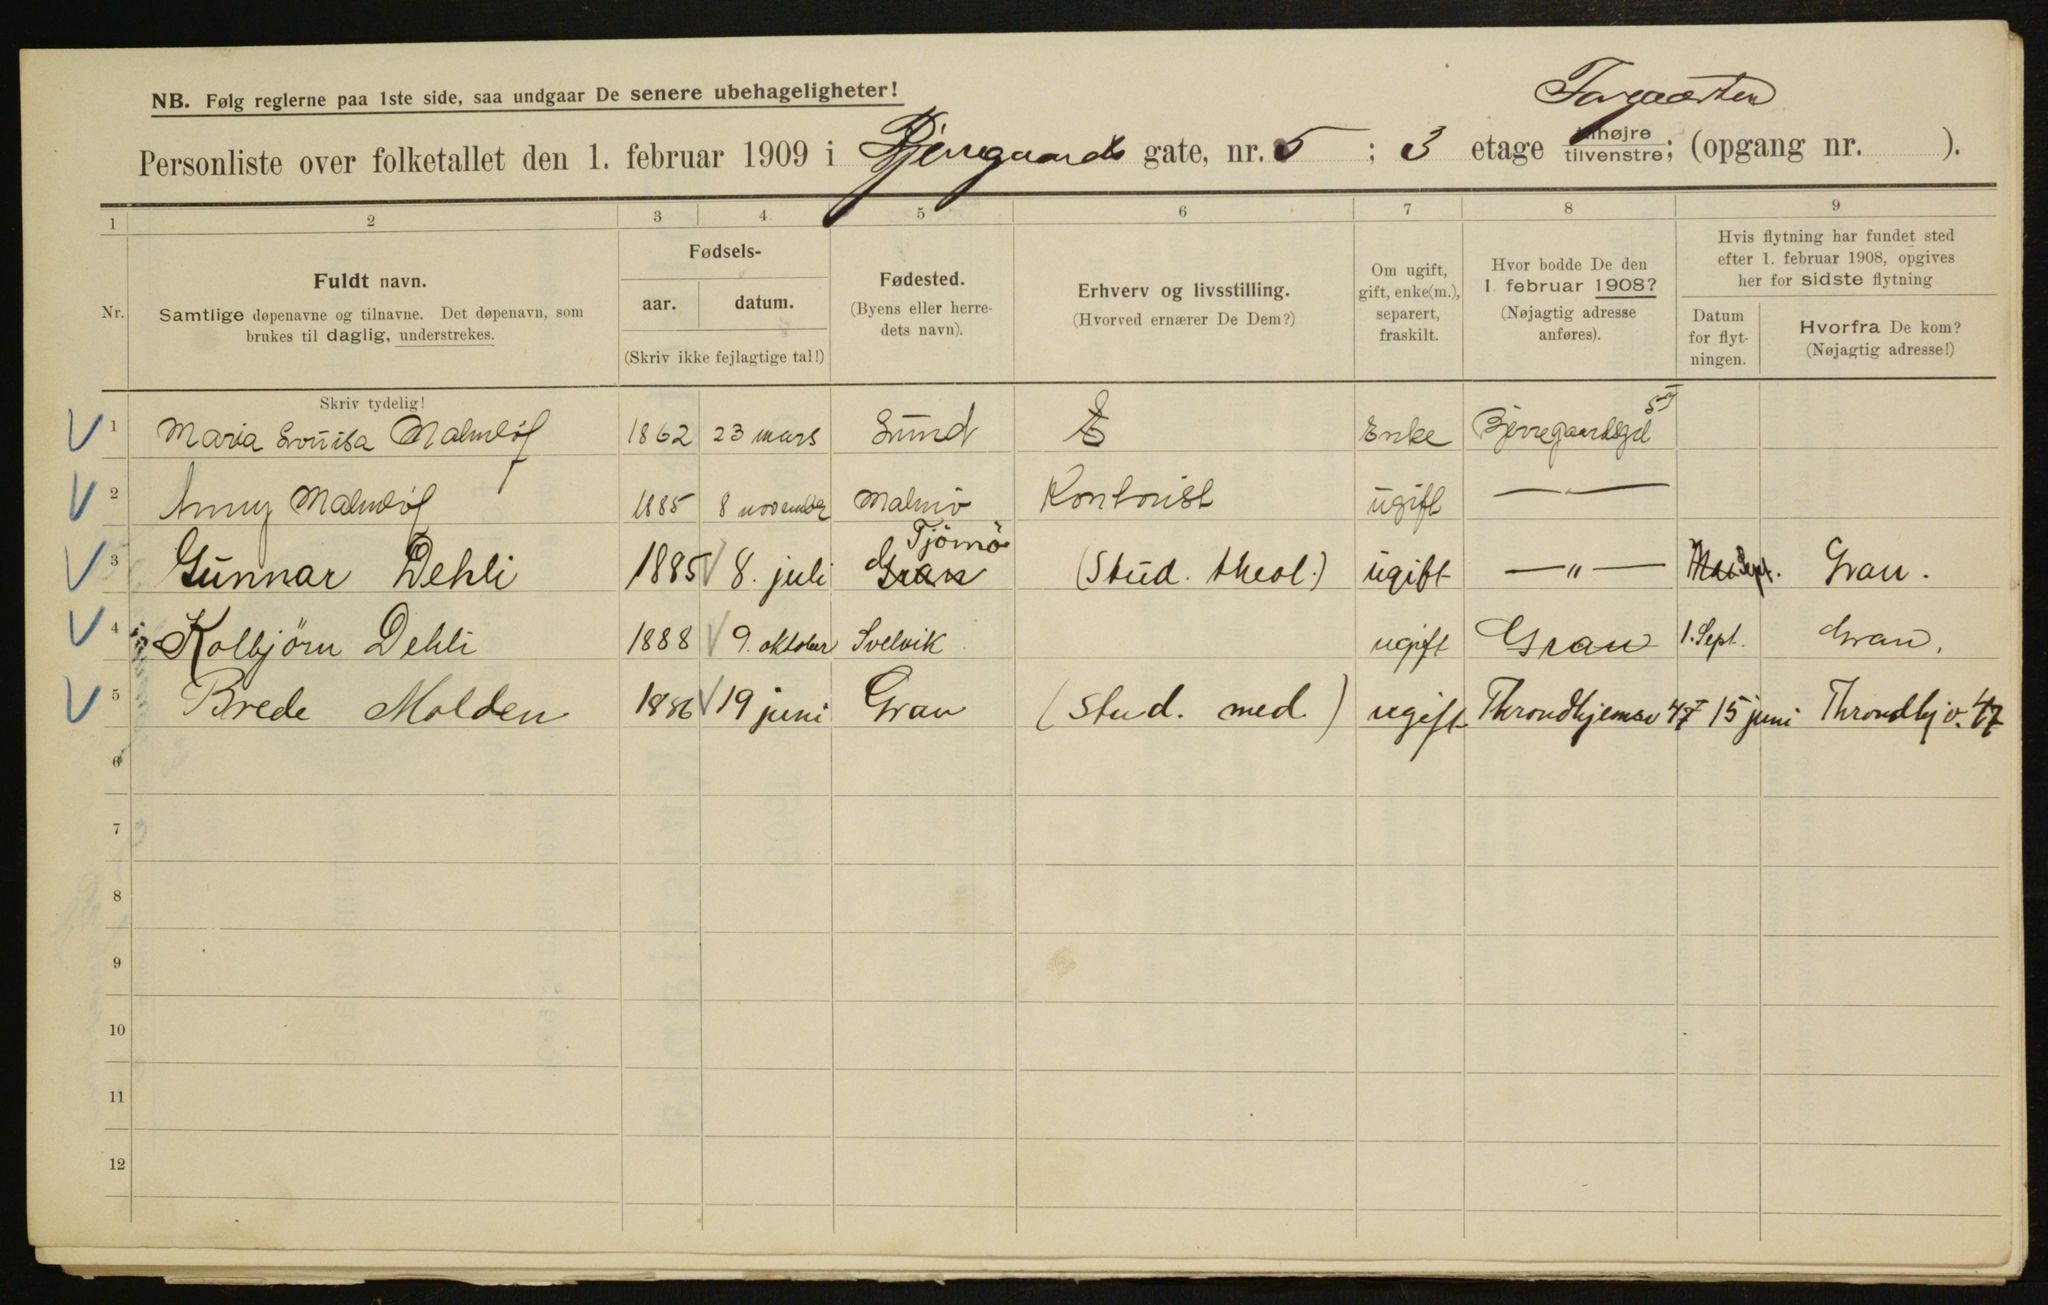 Forgaarden
NB. Følg reglerne paa 1ste side, saa undgaar De senere ubehageligheter!
Personliste over folketallet den 1. februar 1909 i Bjerregaards gate, nr. 5 ; 3 etage tilhøjre tilvenstre; (opgang nr. ).
1 2 3 4 5 6 7 8 9
Nr. Fuldt navn. Samtlige døpenavne og tilnavne. Det døpenavn, som brukes til daglig, understrekes.
Fødsels- aar. datum. (Skriv ikke fejlagtige tal!)
Fødested. (Byens eller herredets navn).
Erhverv og livsstilling. (Hvorved ernærer De Dem?)
Om ugift, gift, enke(m.), separert, fraskilt.
Hvor bodde De den 1 februar 1908? (Nøjagtig adresse anføres).
Hvis flytning har fundet sted efter 1. februar 1908, opgives her for sidste flytning
Datum for flytningen.
Hvorfra De kom? (Nøjagtig adresse!)
Skriv tydelig!
1 Maria Lovisa Malmlöf 1862 23 mars Lund Enke Bjerregaardsgd 5
2 Anny Malmlöf 1885 8 november Malmö Kontorist ugift — " —
3 Gunnar Dehli 1885 8. juli Gran Tjömö (Stud. theol.) ugift — " — Sept. Gran.
4 Kolbjörn Dehli 1888 9. oktober Svelvik ugift Gran 1. Sept. Gran.
5 Brede Molden 1886 19 juni Gran (stud. med.) ugift Throndhjemsv 47 15 juni Throndhj v. 47
6
7
8
9
10
11
12